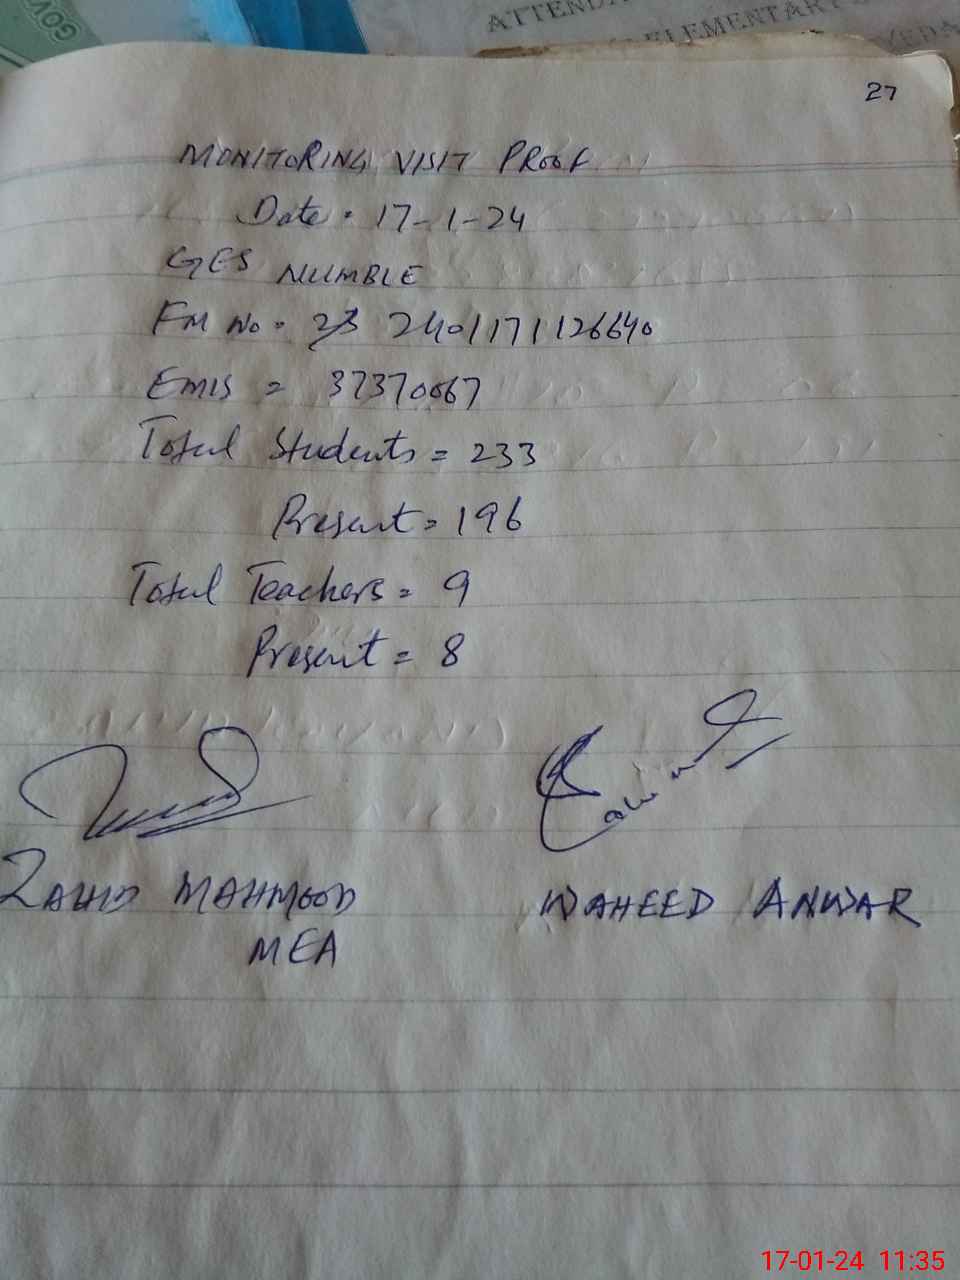 GOV
ATTENDA
ELEMENTARY
VEDA
27
MONITORING VISIT PROOF
Date. 17-1-24
GES NUMBLE
FM No. 2401171126640
EMIS = 37370067
Total Students = 233
Present = 196
Total Teachers = 9
Present = 8
ZAHID MAHMOOD
WAHEED ANWAR
MEA
17-01-24 11:35